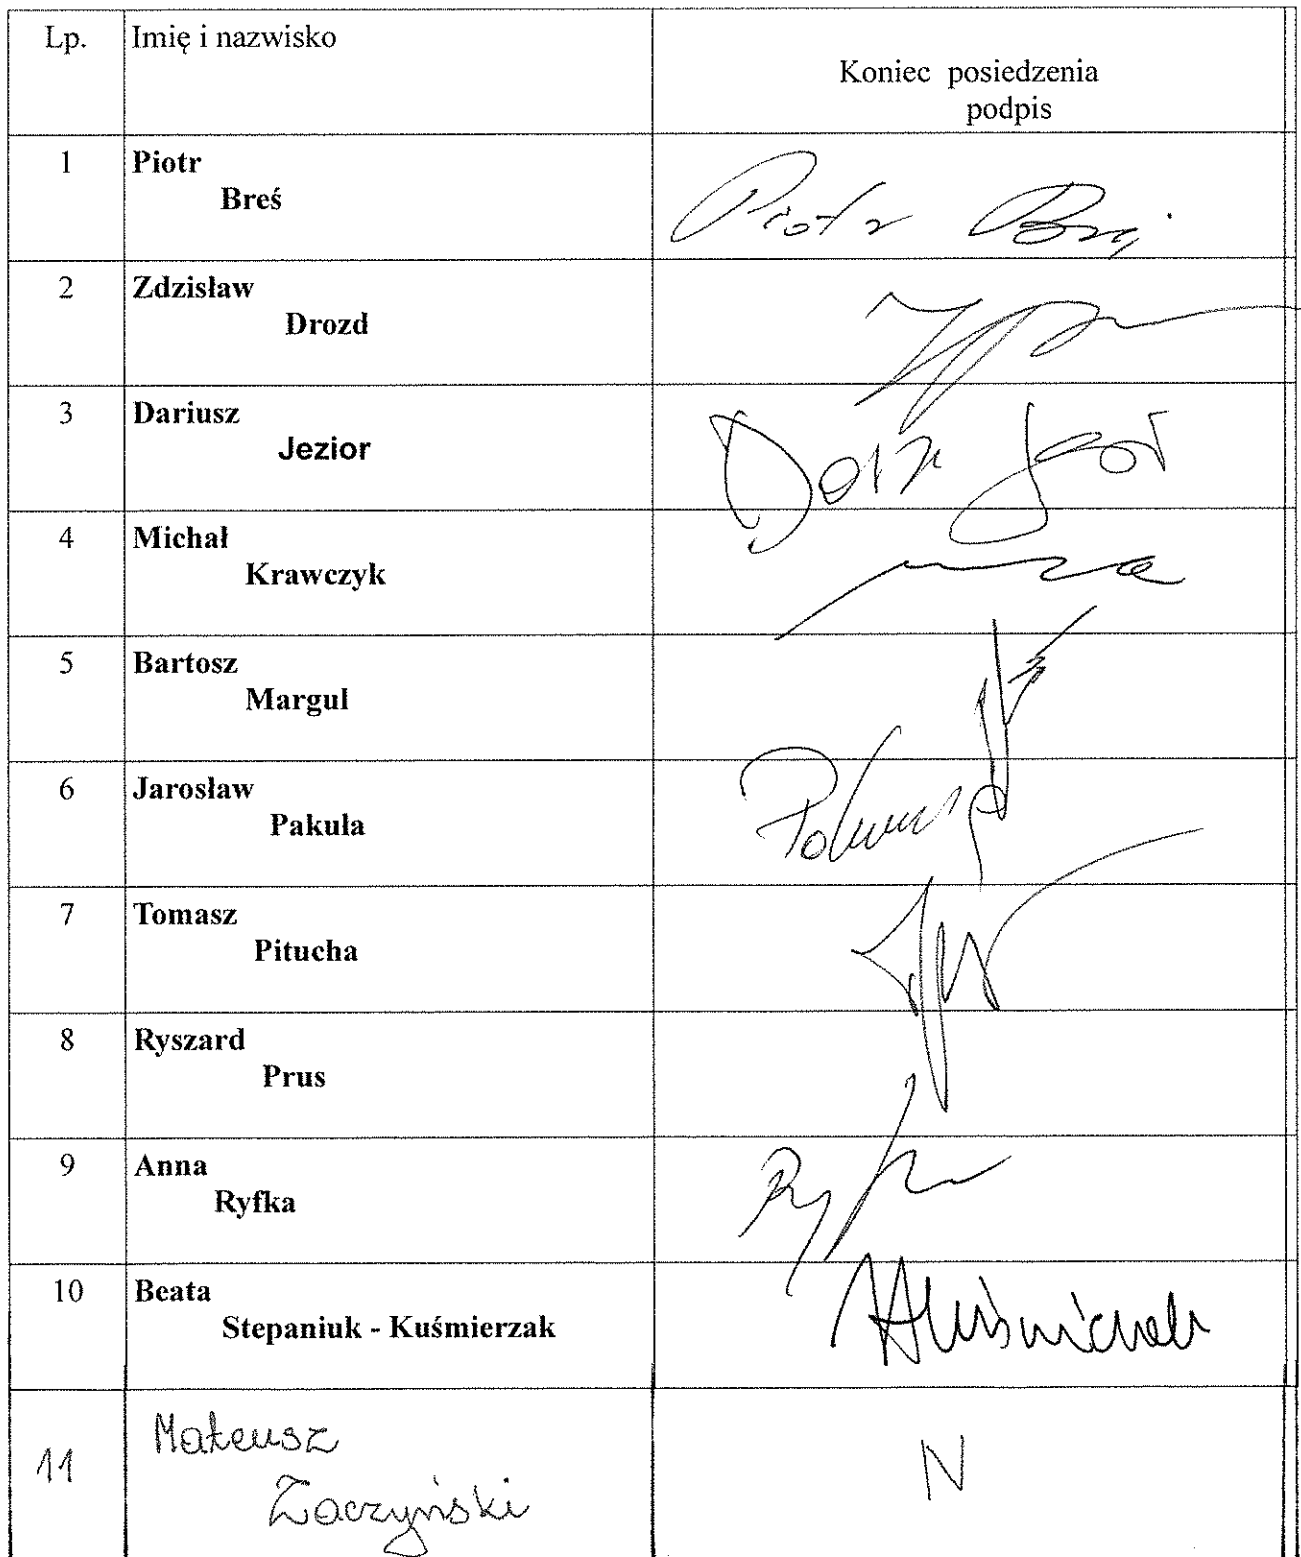 Lp. Imię i nazwisko
Koniec posiedzenia
podpis
1 Piotr
Breś
Piotr Breś
2 Zdzisław
Drozd
3 Dariusz
Jezior
4 Michał
Krawczyk
5 Bartosz
Margul
6 Jarosław
Pakuła
7 Tomasz
Pitucha
8 Ryszard
Prus
9 Anna
Ryfka
10 Beata
Stepaniuk - Kuśmierzak
11 Mateusz
Zaczyński
N